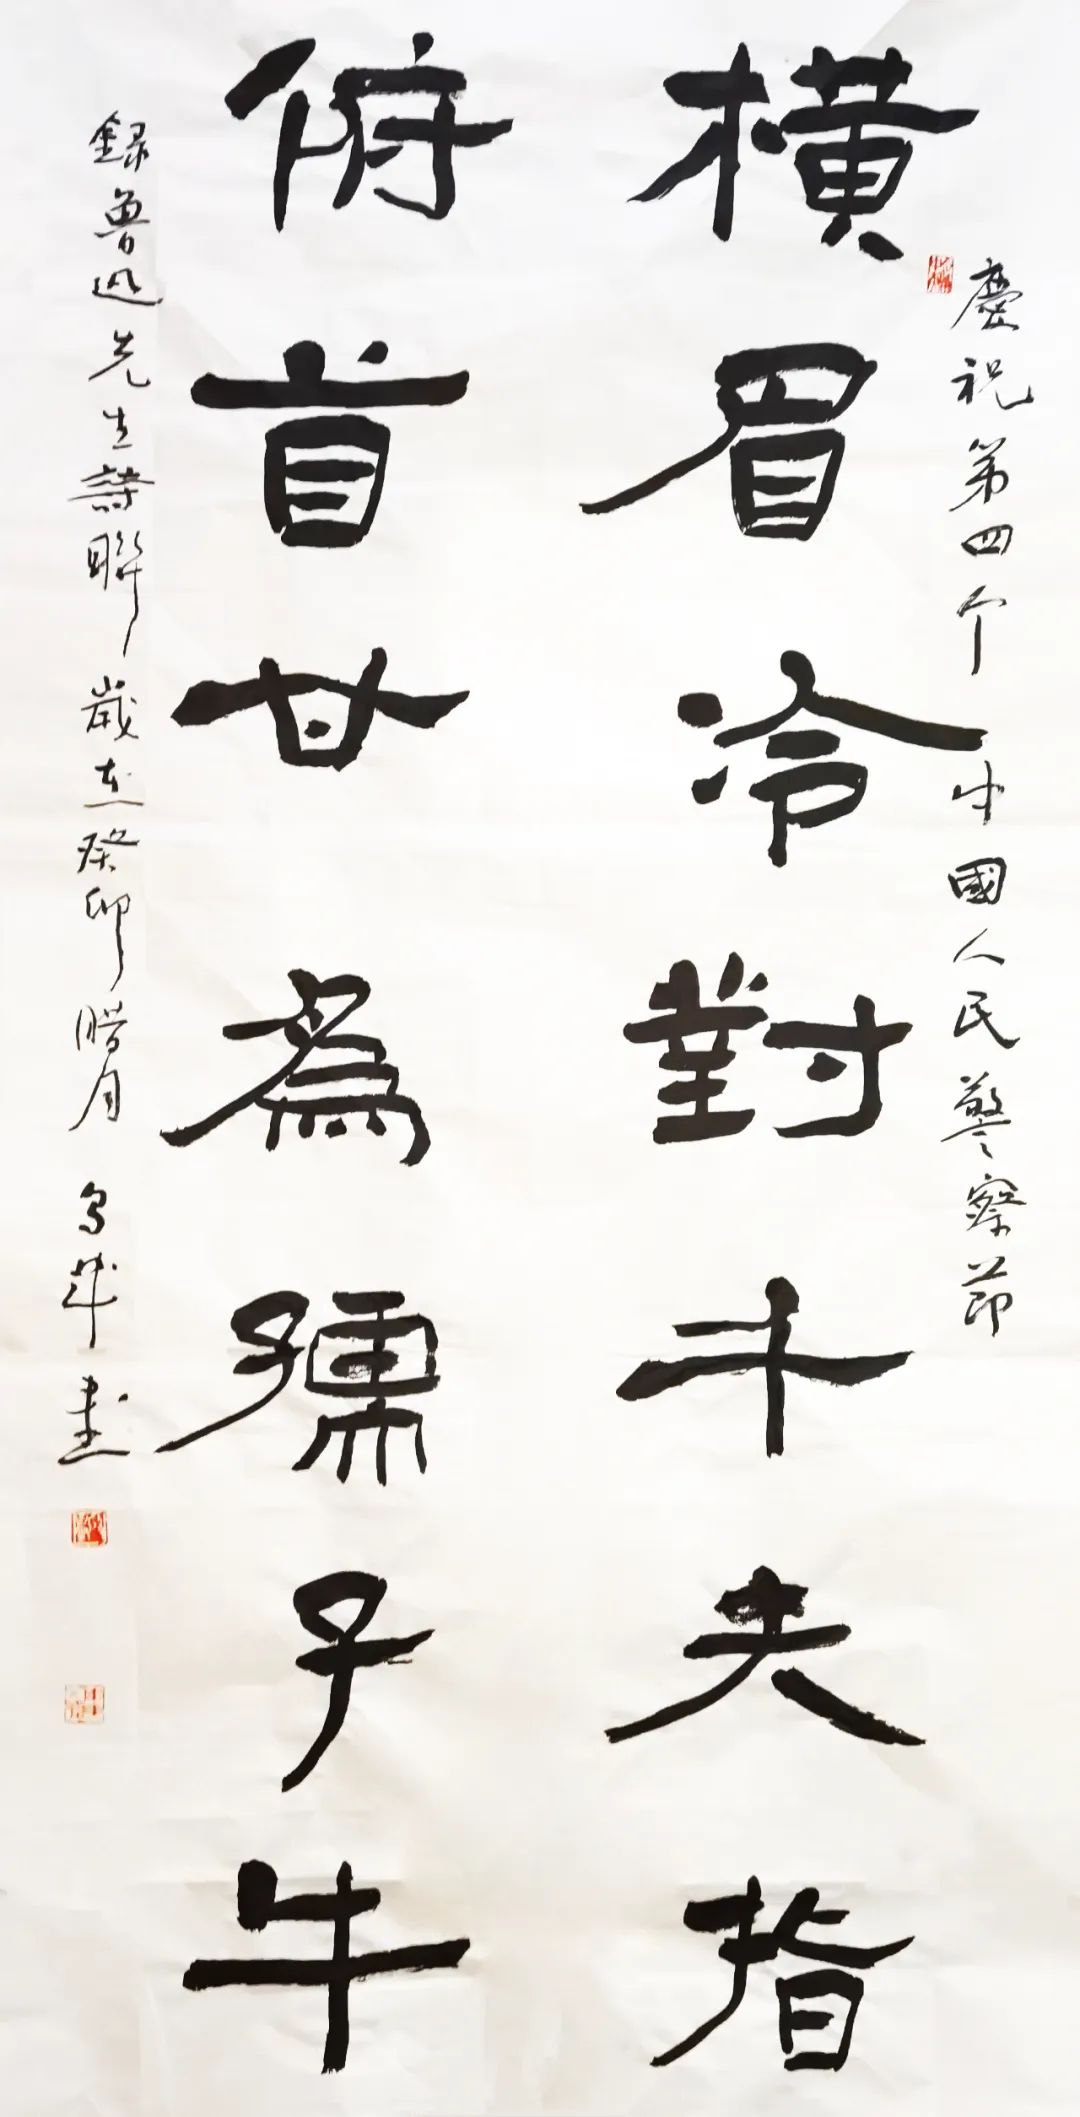 慶祝第四个中國人民警察節
橫眉冷對千夫指
俯首甘為孺子牛
録魯迅先生詩聯歲在癸卯臘月
書